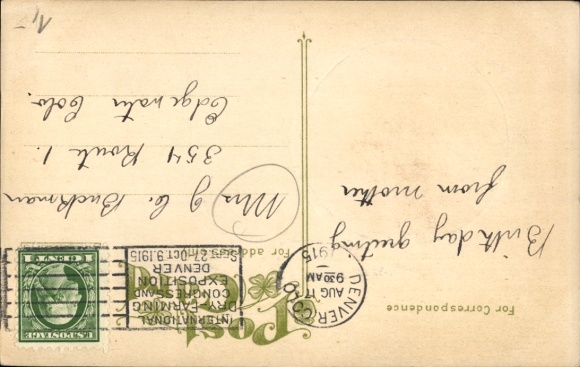 For Correspondence
Post Card
For address only
DENVER COLO.
AUG 17
9 30 AM
1915
INTERNATIONAL
DRY-FARMING
CONGRESS AND
EXPOSITION
DENVER
SEPT. 27-OCT. 9. 1915
U.S. POSTAGE
1 CENT 1
Birthday greeting
from mother
Mrs J. C. Buckman
354 Route 1.
Edgewater Colo.